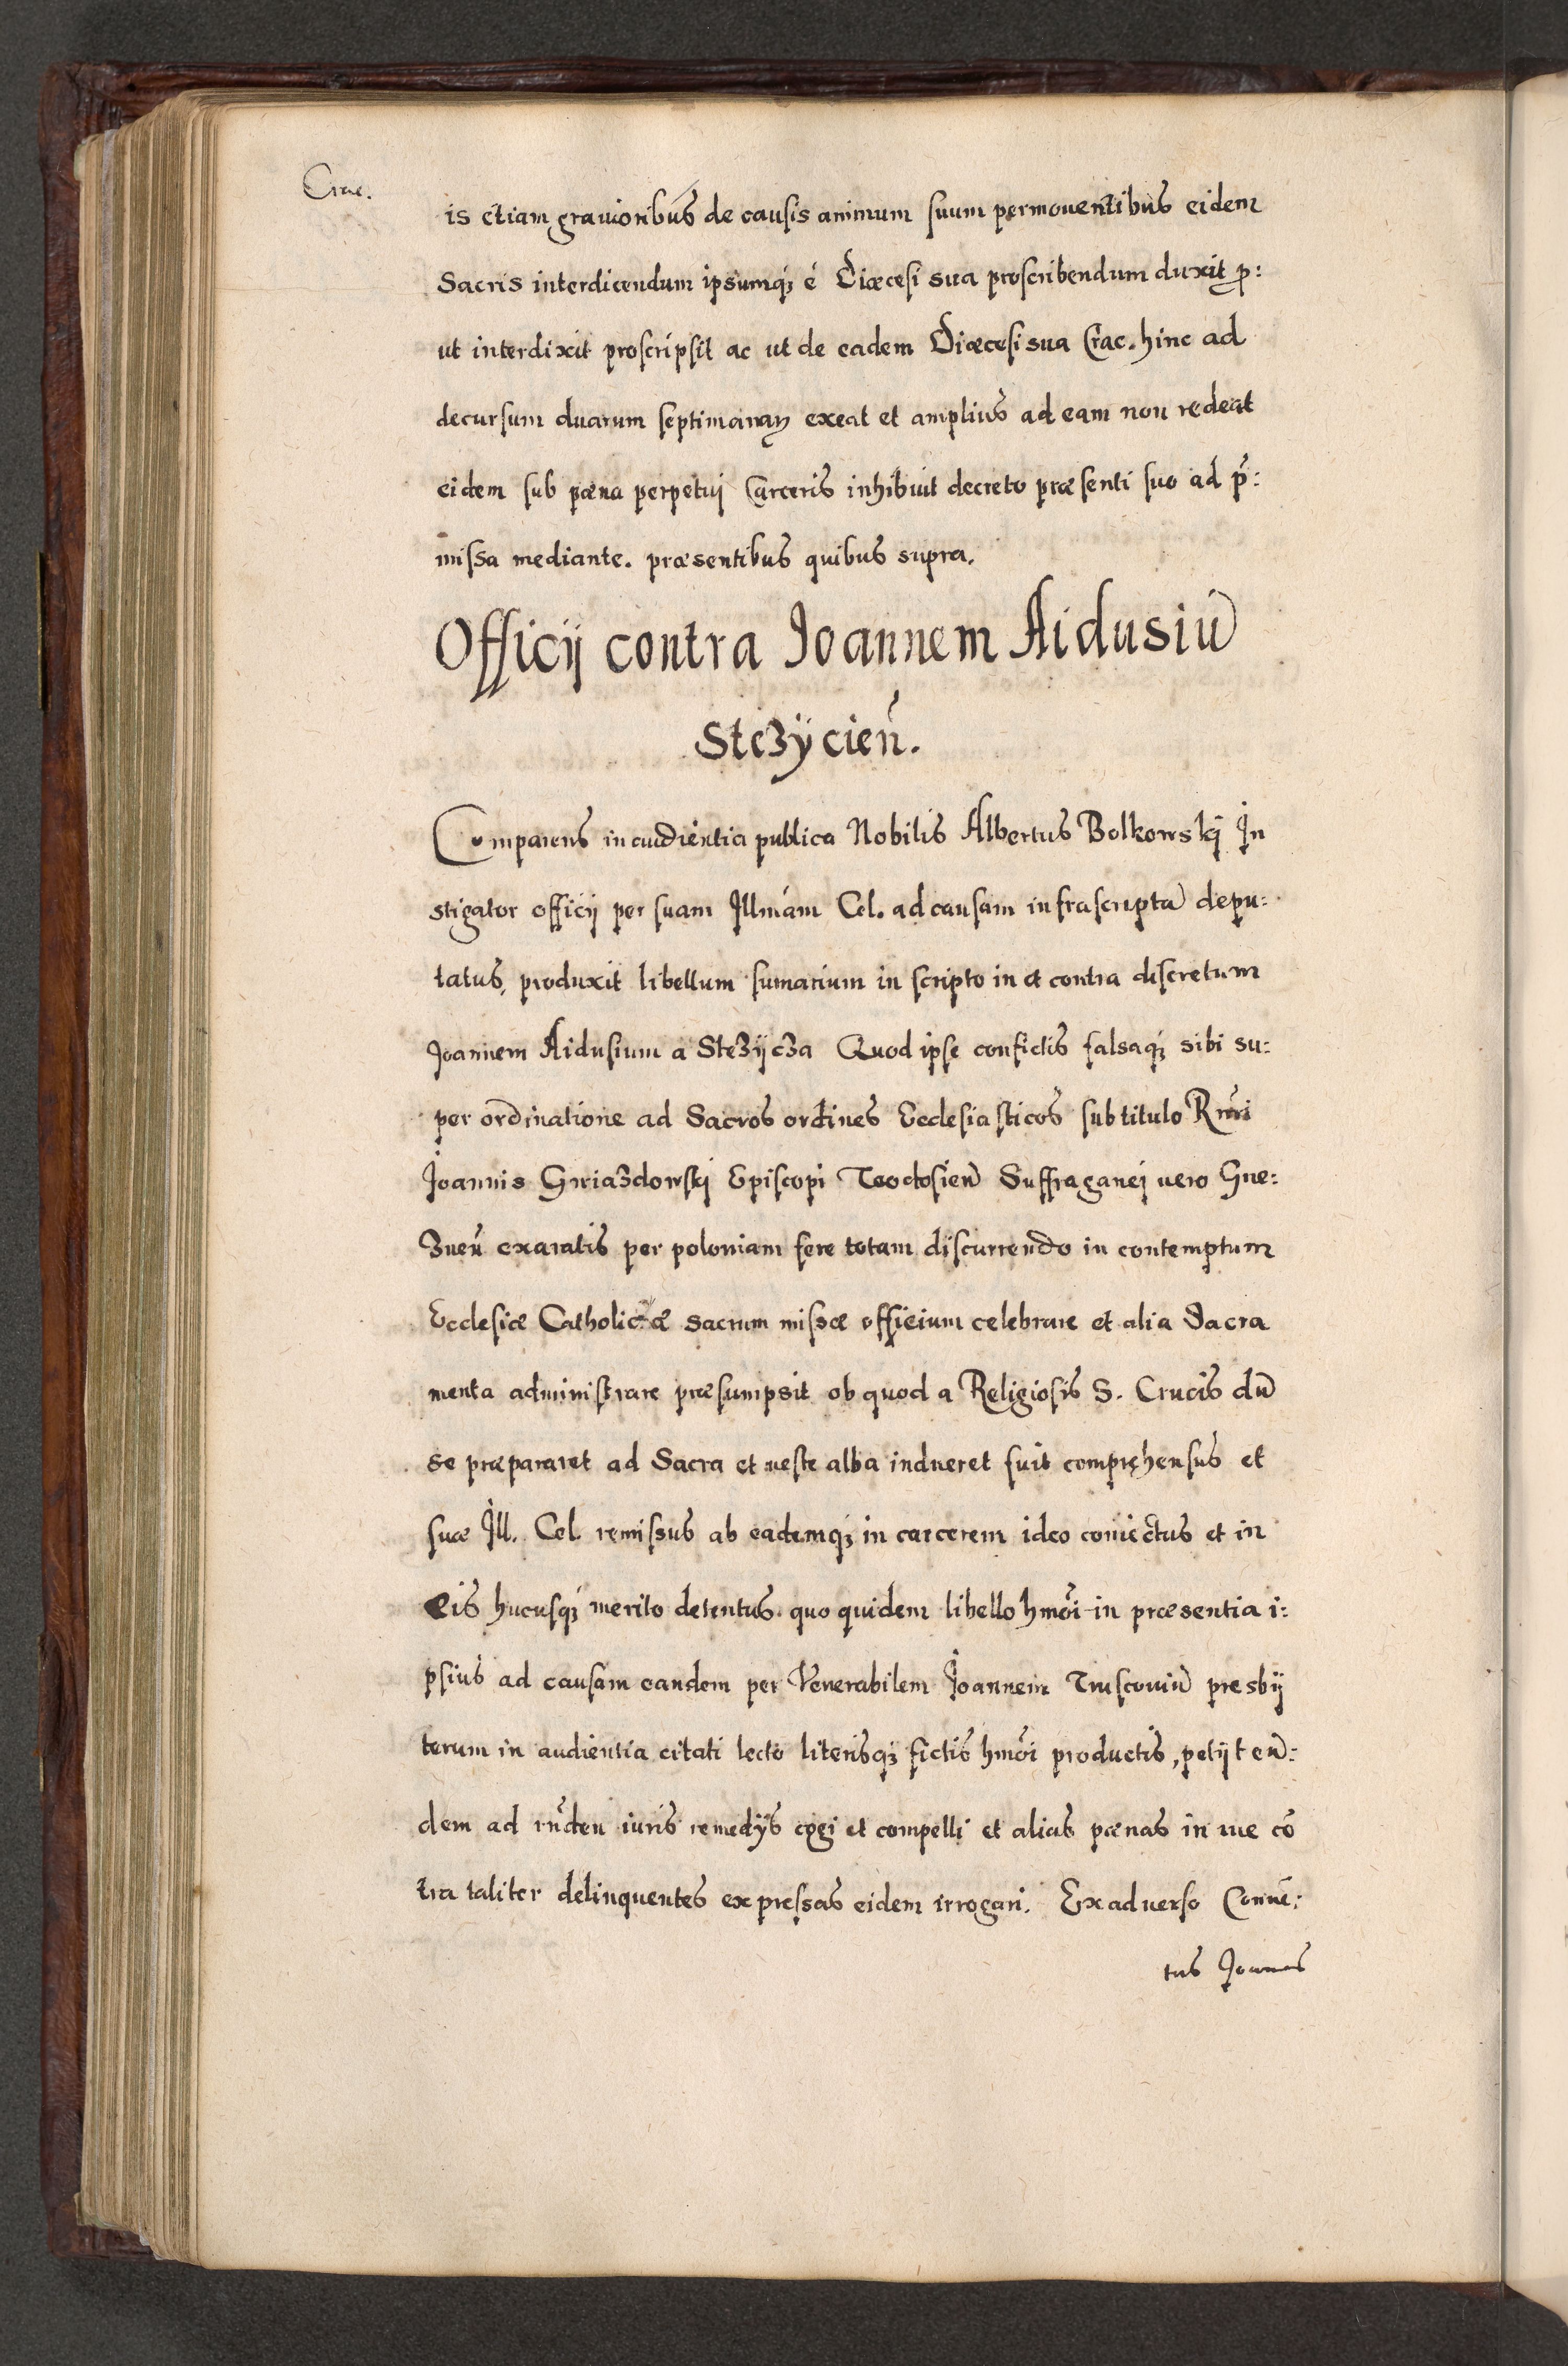 Crac.
is etiam grauioribus de causis animum suum permouentibus eidem
Sacris interdicendum ipsumq3 é Diœcesi sua proscribendum duxit p:
ut interdixit proscripsit ac ut de eadem Diœcesi sua Crac. hinc ad
decursum duarum septimanarꝝ exeat et amplius ad eam non redeat
eidem sub pœna perpetuj Carceris inhibuit decreto præsenti suo ad p̃:
missa mediante. præsentibus quibus supra.
Officij contra Joannem Aidusiũ
Stezÿcieñ.
Comparens in audientia publica Nobilis Albertus Bolkowskj In
stigator officij per suam Illmam Cel. ad causam infrascriptã depu:
tatus, produxit libellum sumarium in scripto in et contra discretum
Joannem Aidusium a Stezÿcza Quod ipse confictis falsaq3 sibi su:
per ordinatione ad Sacros ordines Ecclesiasticos sub titulo Rmi
Joannis Gwiazdowskj Episcopi Teodosieñ Suffraganej uero Gne:
zneñ exaratis per poloniam fere totam discurrendo in contemptum
Ecclesiæ Catholicæ sacrum missæ officium celebrare et alia Sacra
menta administrare præsumpsit ob quod a Religiosis S. Crucis dũ
se præpararet ad Sacra et ueste alba indueret fuit compręhensus et
suæ Ill. Cel. remissus ab eademq3 in carcerem ideo coniectus et in
eis hucusq3 merito detentus. quo quidem libello hmõi in præsentia i:
psius ad causam eandem per Venerabilem Joannem Truscouiũ presbÿ
terum in audientia citati lecto literisq3 fictis hmõi productis, petÿt eũ:
dem ad rñdeñ iuris remedÿs cogi et compelli et alias pœnas in iure cõ
tra taliter delinquentes expressas eidem irrogari. Ex aduerso Conuẽ:
tus Joannes